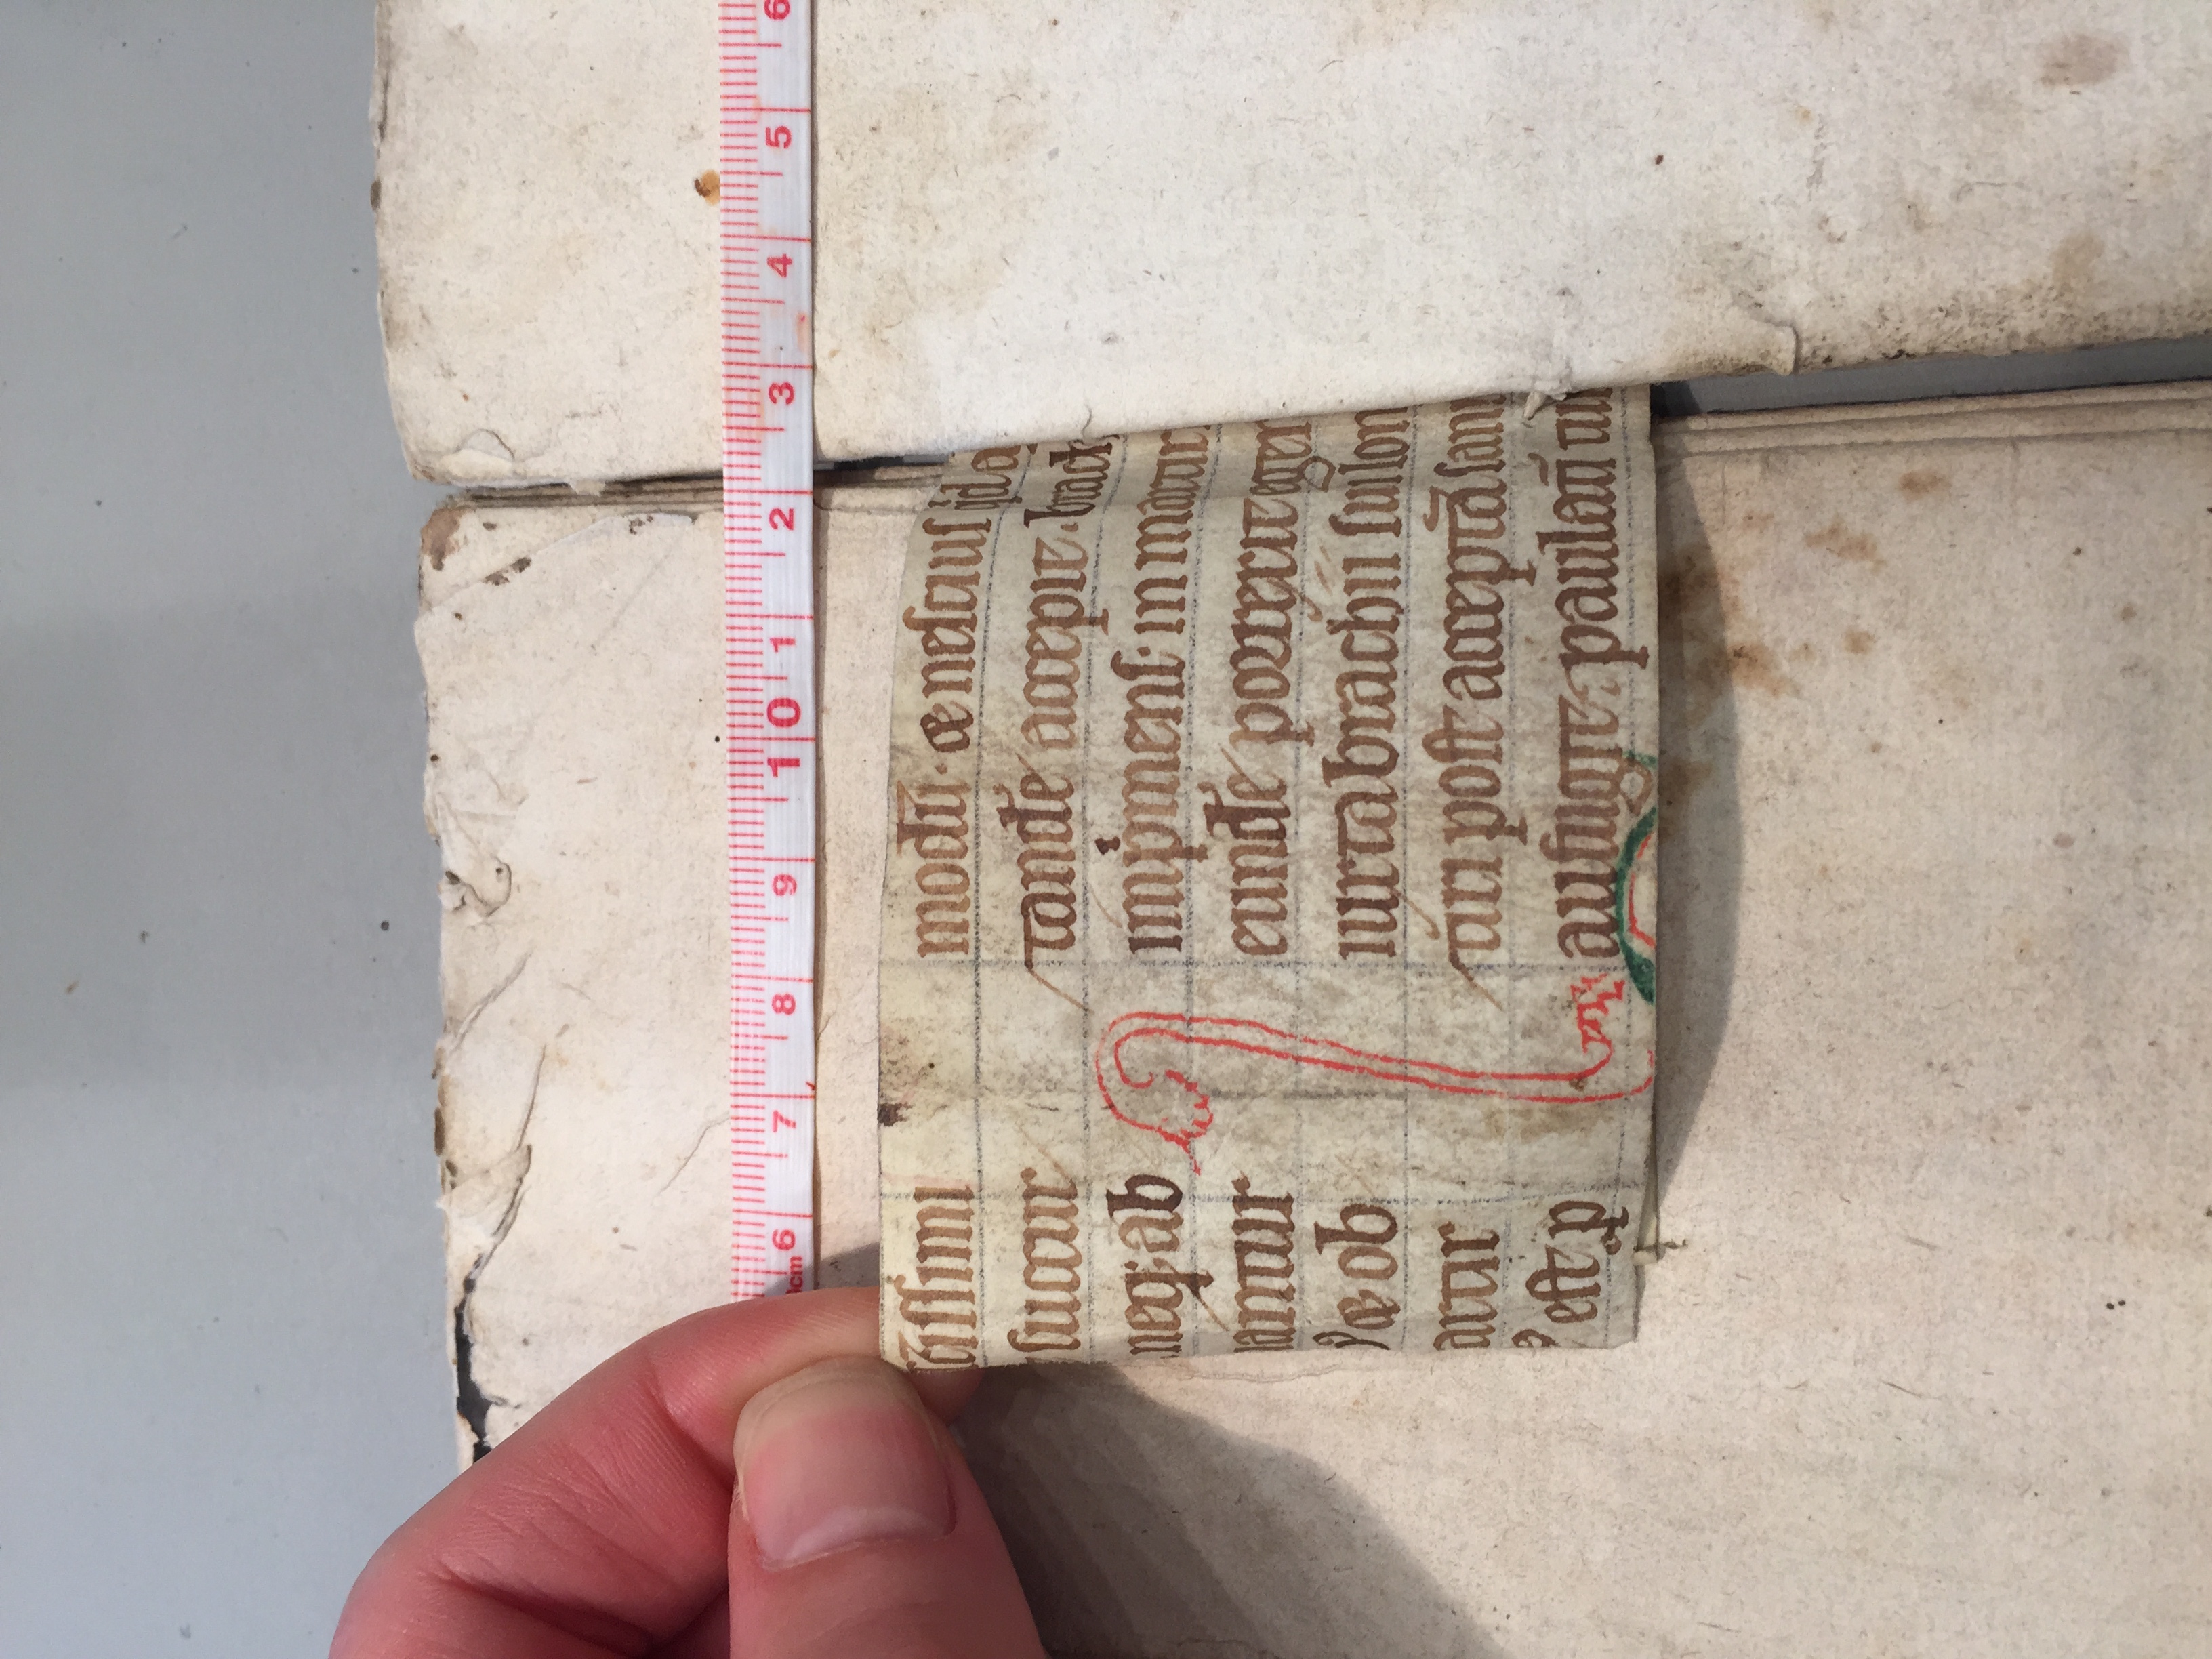 6 7 8 9 10 1 2 3 4 5 6
cm
cissimi
succur
neq; ab
antur
⁊ ob
artir
est p
modū · ⁊ nescius qid a
tandē accepit · brach
imp̍mens · in martir
eundē porrexit eger
iuxta brachii sui lon
tiri post acceptā sani
aufugit · paulatī tu